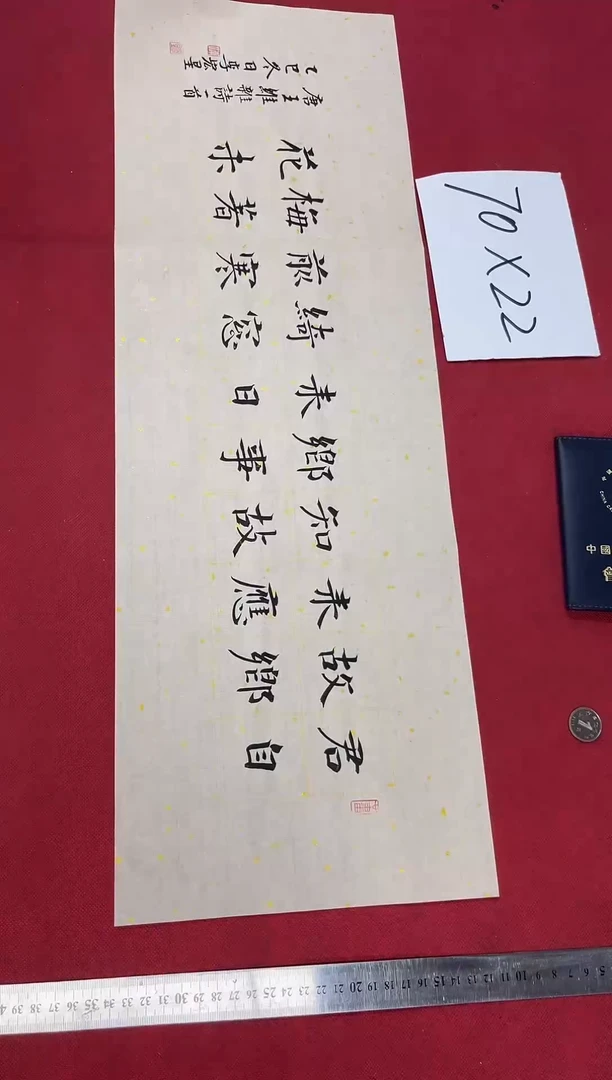 君自
故鄉
来應
知故
鄉事
来日
綺窓
前寒
梅著
花未
唐王維雜詩一首
乙巳冬日
70X22
中國
5 6 7 8 9 10 11 12 13 14 15 16 17 18 19 20 21 22 23 24 25 26 27 28 29 30 31 32 33 34 35 36 37 38 39 4